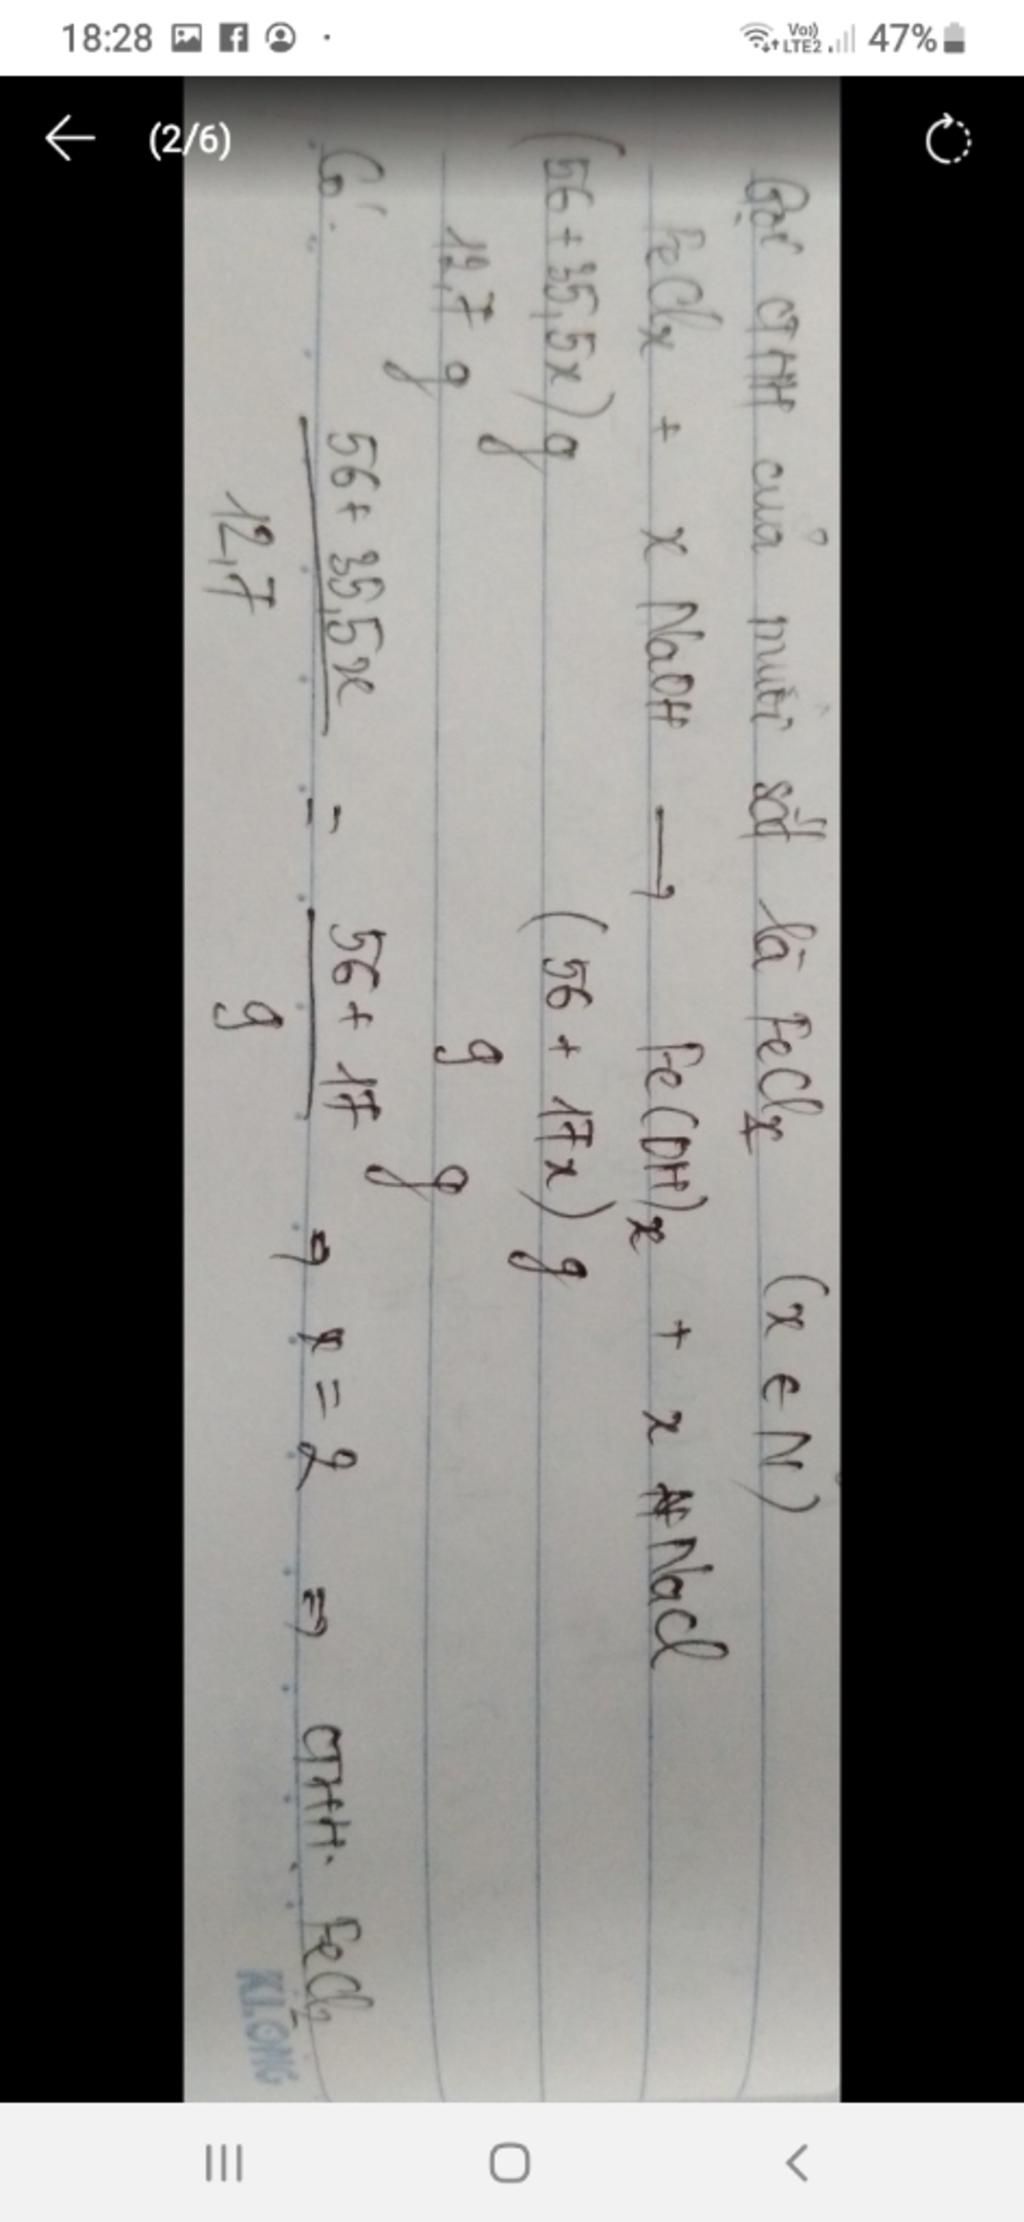 18:28
Vo))
LTE2
47%
(2/6)
Gọi CTHH của muối sắt là FeClx (x ∈ N)
FeClx + x NaOH → Fe(OH)x + x NaCl
(56 + 35,5x) g (56 + 17x) g
12,7 g 9 g
Có:
56 + 35,5x = 56 + 17 → x = 2 ⇒ CTHH: FeCl2
12,7 9
KLONG